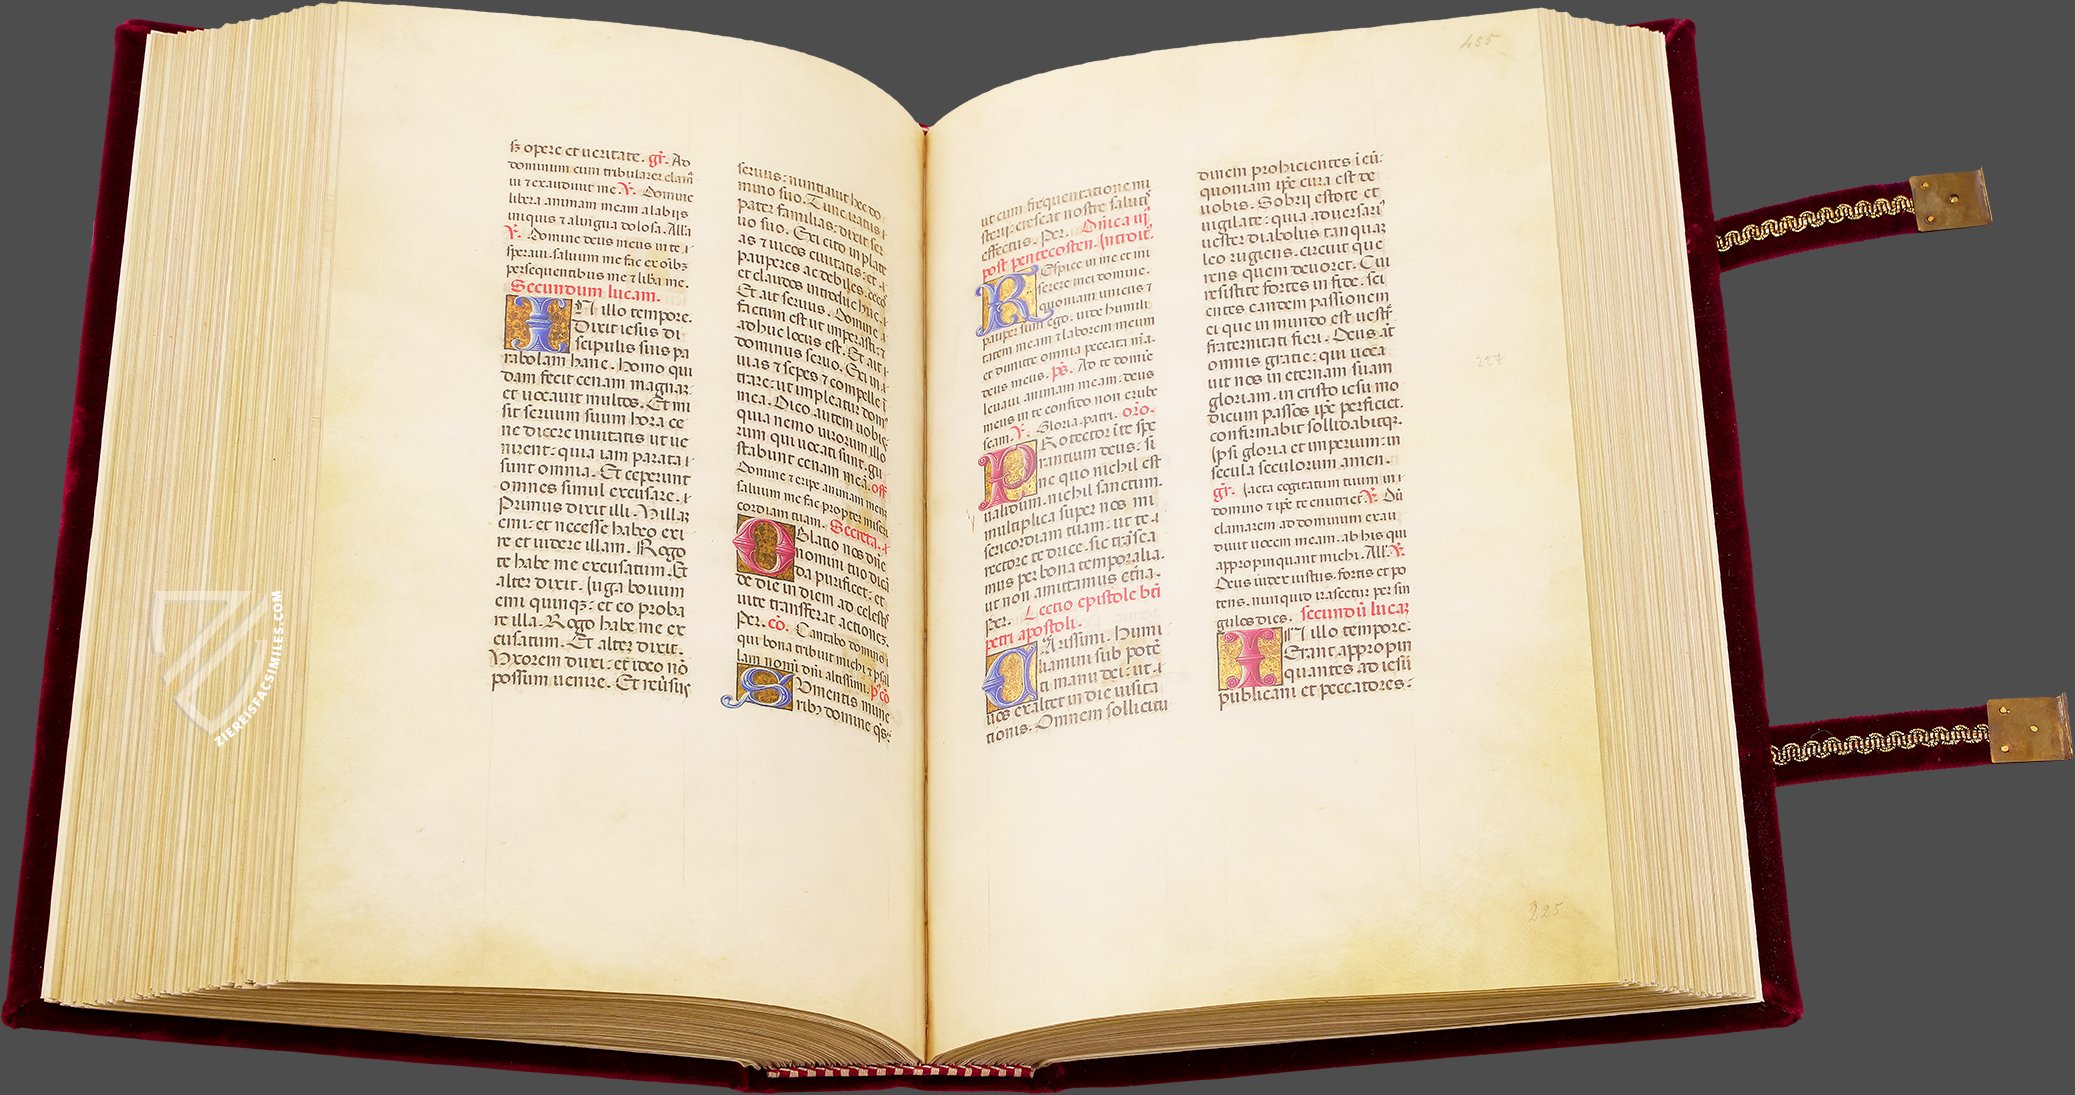 sꝫ opere et ueritate. gr̄. Ad
dominum cum tribularer clam̄
ui ⁊ exaudiuit me. ℣. Domine
libera animam meam a labijs
iniquis ⁊ a lingua dolosa. Alł'a
℣. Domine deus meus in te ·
speraui. saluum me fac ex oībꝫ
persequentibus me ⁊ liba me.
Secundum lucam.
IN illo tempore.
Dixit iesus di
scipulis suis pa
rabolam hanc. Homo qui
dam fecit cenam magnaꝫ
et uocauit multos. Et mi
sit seruum suum hora ce
ne dicere inuitatis ut ue
nirent: quia iam parata ·
sunt omnia. Et ceperunt
omnes simul excusare. ·
Primus dixit illi. Villaꝫ
emi: et necesse habeo exi
re et uidere illam. Rogo
te habe me excusatum. Et
alter dixit. Iuga bouum
emi quinqꝫ: et eo proba
re illa. Rogo habe me ex
cusatum. Et alter dixit.
Vxorem duxi: et ideo nō
possum uenire. Et reūsus
seruus: nuntiauit hec do
mino suo. Tunc iratus ·
pater familias: dixit ser
uo suo. Exi cito in plate
as ⁊ uicos ciuitatis: et ·
pauperes ac debiles. cecos
et claudos introduc huc. ·
Et ait seruus. Domine ·
factum est ut imperasti: ⁊
adhuc locus est. Et ait ·
dominus seruo. Exi in ·
uias ⁊ sepes ⁊ compelle ī
trare: ut impleatur dom'
mea. Dico autem uobis
quia nemo uirorum illo
rum qui uocati sunt. gu
stabunt cenam meā. off
Domine ⁊ eripe animam meam
saluum me fac propter miseri
cordiam tuam. Secreta. ·
Oblatio nos dn̄e
nomini tuo dicā
da purificet: et
de die in diem ad celest'
uite transferat actionēꝫ.
Per. cō. Cantabo domino ·
qui bona tribuit michi ⁊ psal
lam nomī dn̄i altissimi. p' cō
Sumentis mune
ribꝫ domine q̄s:
455
ut cum frequentatione mi
sterij: crescat nostre salutꝭ
effectus. Per. Dn̄ica iij
post pentecosten. Introit'.
REspice in me et mi
serere mei domine.
quoniam unicus ⁊
pauper sum ego. uide humili
tatem meam ⁊ laborem meum
et dimitte omnia peccata m̄a.
deus meus. p̄s. Ad te domie
leuaui animam meam: deus
meus in te confido non erube
scam. ℣. Gloria patri. or̄o.
PRotector ī te spe
rantium deus: si
ne quo nichil est
ualidum. nichil sanctum.
multiplica super nos mi
sericordiam tuam: ut te ·
rectore te duce. sic trāsea
mus per bona temporalia.
ut non amittamus et̄na.
Per. Lectio epistole bt̄i
petri apostoli.
CArissimi. Humi
liamini sub potē
ti manu dei: ut ·
uos exaltet in die uisita
tionis. Omnem sollicitu
dinem prohicientes ī eū:
quoniam ip̄e cura est de
uobis. Sobrij estote et
uigilate: quia aduersari'
uester diabolus tanquaꝫ
leo rugiens. circuit que
rens quem deuoret. Cui
resistite fortes in fide. sci
entes eandem passionem
ei que in mundo est uestr̄
fraternitati fieri. Deus aūt
omnis gratie: qui uoca
uit nos in eternam suam
gloriam. in cristo iesu mo
dicum passos ip̄e perficiet.
confirmabit sollidabitqꝫ.
Ipsi gloria et imperium: in
secula seculorum amen.
gr̄. Iacta cogitatum tuum in ·
domino ⁊ ip̄e te enutriet. ℣. Dū
clamarem ad dominum exau
diuit uocem meam. ab his qui
appropinquant michi. Alł'. ℣.
Deus iudex iustus. fortis et po
tens. nunquid irascetur per sin
gulos dies. secundū lucaꝫ
IN illo tempore.
Erant appropin
quantes ad iesū
publicani et peccatores:
227
225
ZIEREISFACSIMILES.COM